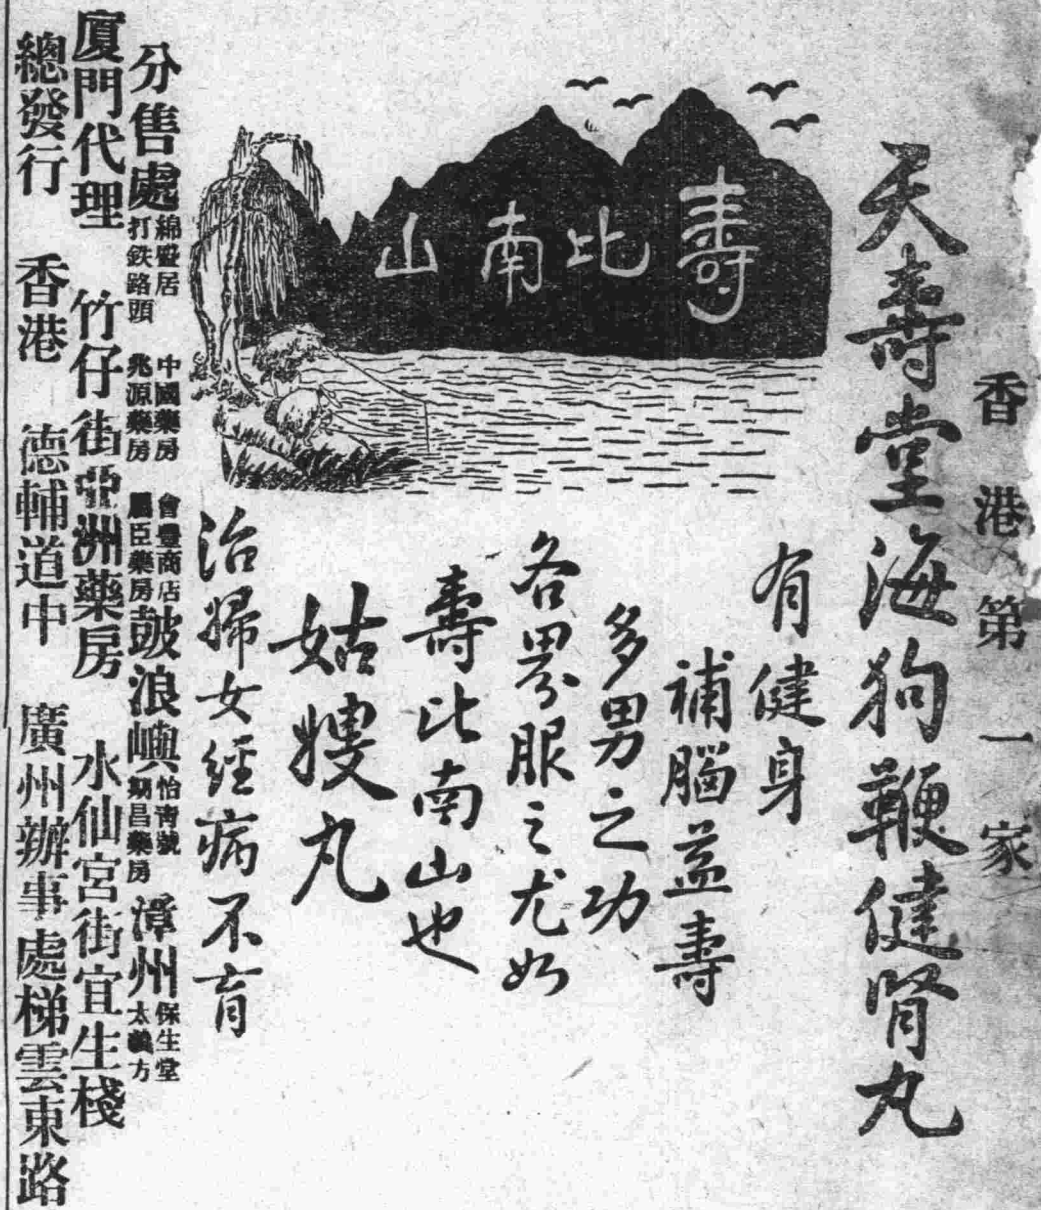 香港第一家
天壽堂海狗鞭健腎丸
壽比南山
有健身
補腦益壽
多男之功
各界服之尤如
壽比南山也
姑嫂丸
治婦女經病不育
分售處
綿發居 中國藥房 會豐商店
打鉄路頭 兆源藥房 屈臣藥房
鼓浪嶼
怡靑號
昌藥房
漳州
保生堂
太義方
廈門代理 竹仔街亞洲藥房 水仙宮街宜生棧
總發行 香港 德輔道中 廣州辦事處梯雲東路